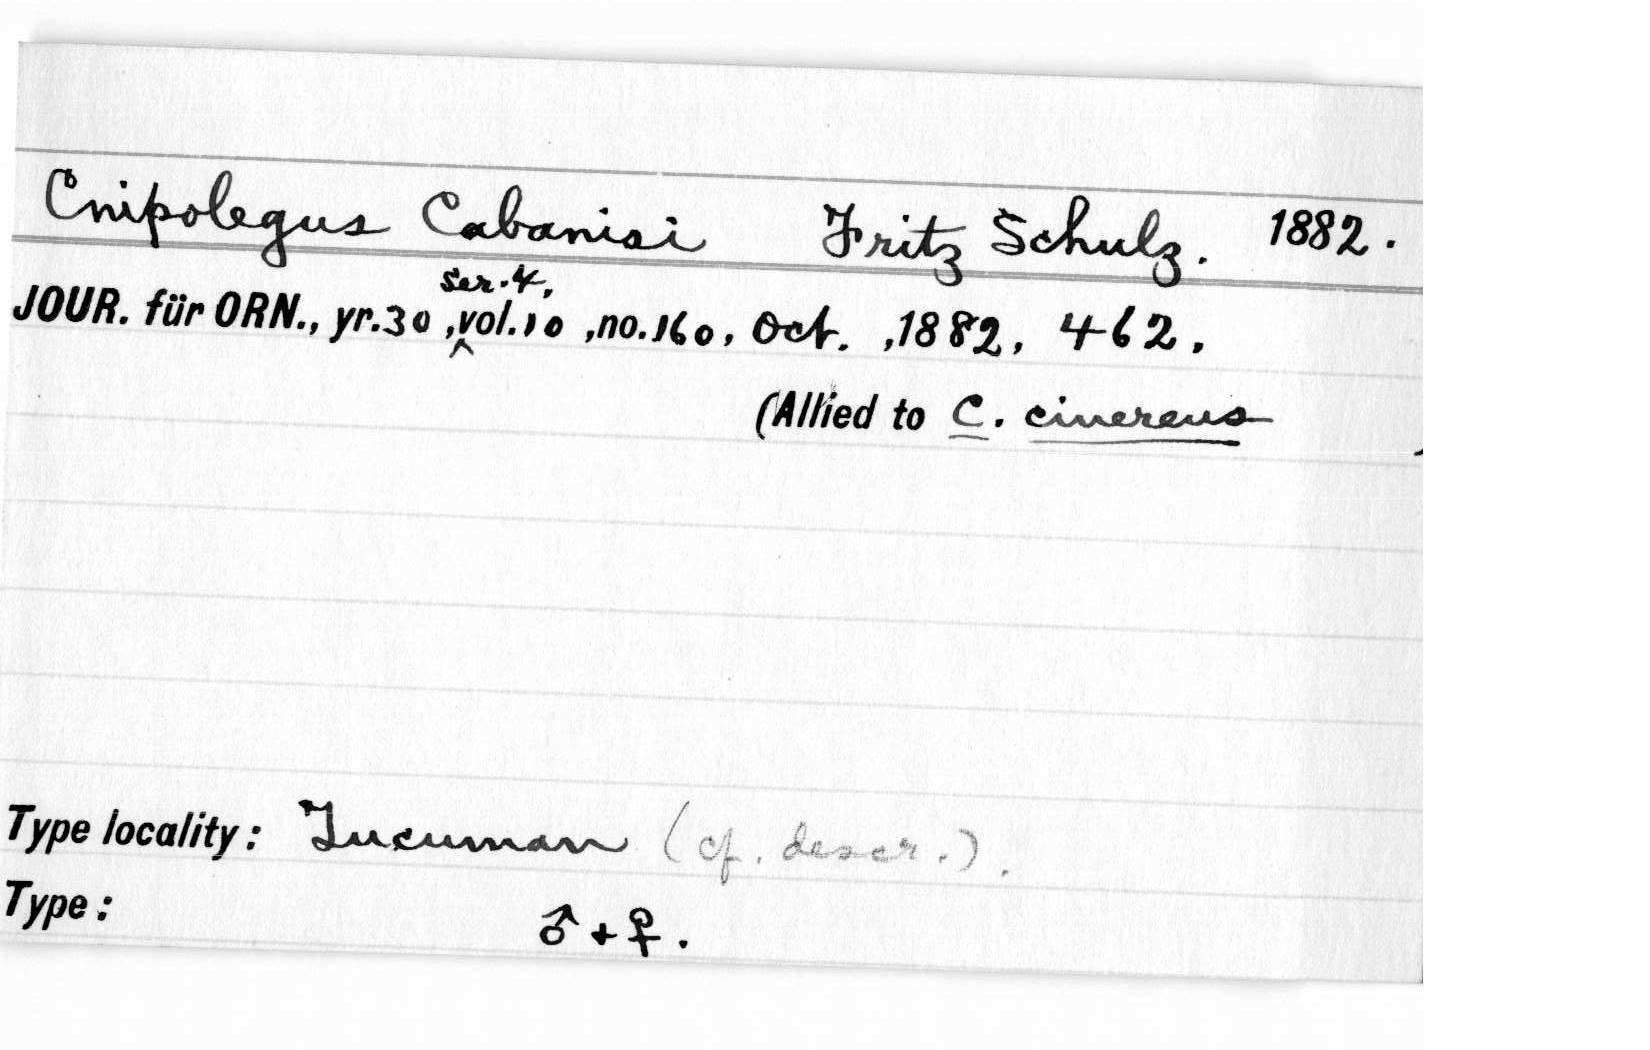 Cnipolegus Cabanisi Fritz Schulz. 1882.
ser. 4,
JOUR. für ORN., yr.30 ,vol.10 ,no.160, Oct. ,1882, 462.
(Allied to C. cinereus )
Type locality: Tucuman (cf. descr.).
Type: ♂ + ♀.